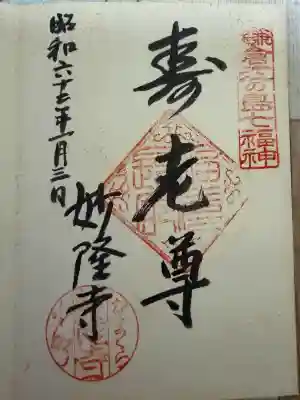 鎌倉江の島七福神
寿老尊
妙隆寺
昭和六十二年一月三日